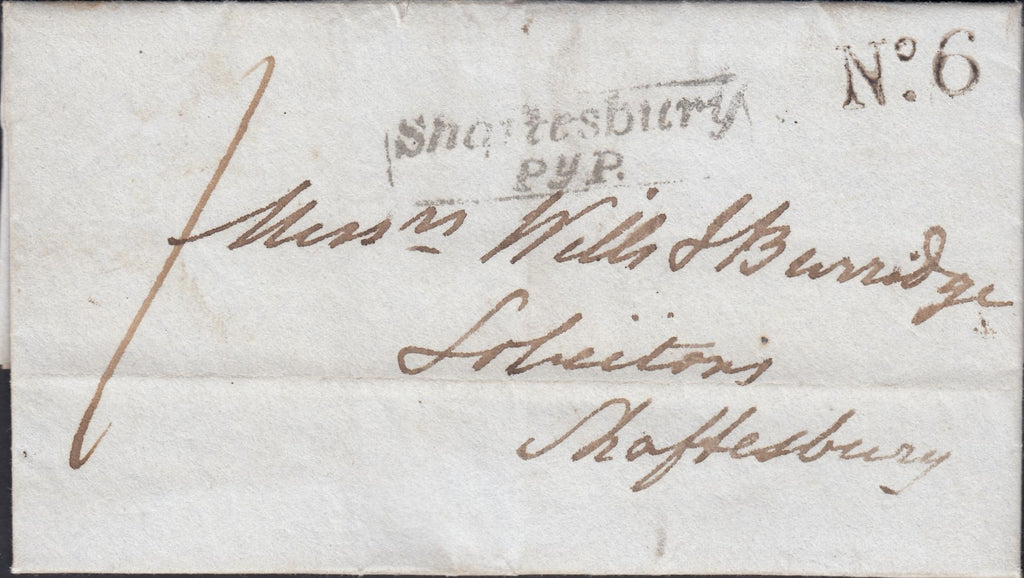 No. 6
Shaftesbury
Py P.
Messrs Wills & Burridge
Solicitors
Shaftesbury